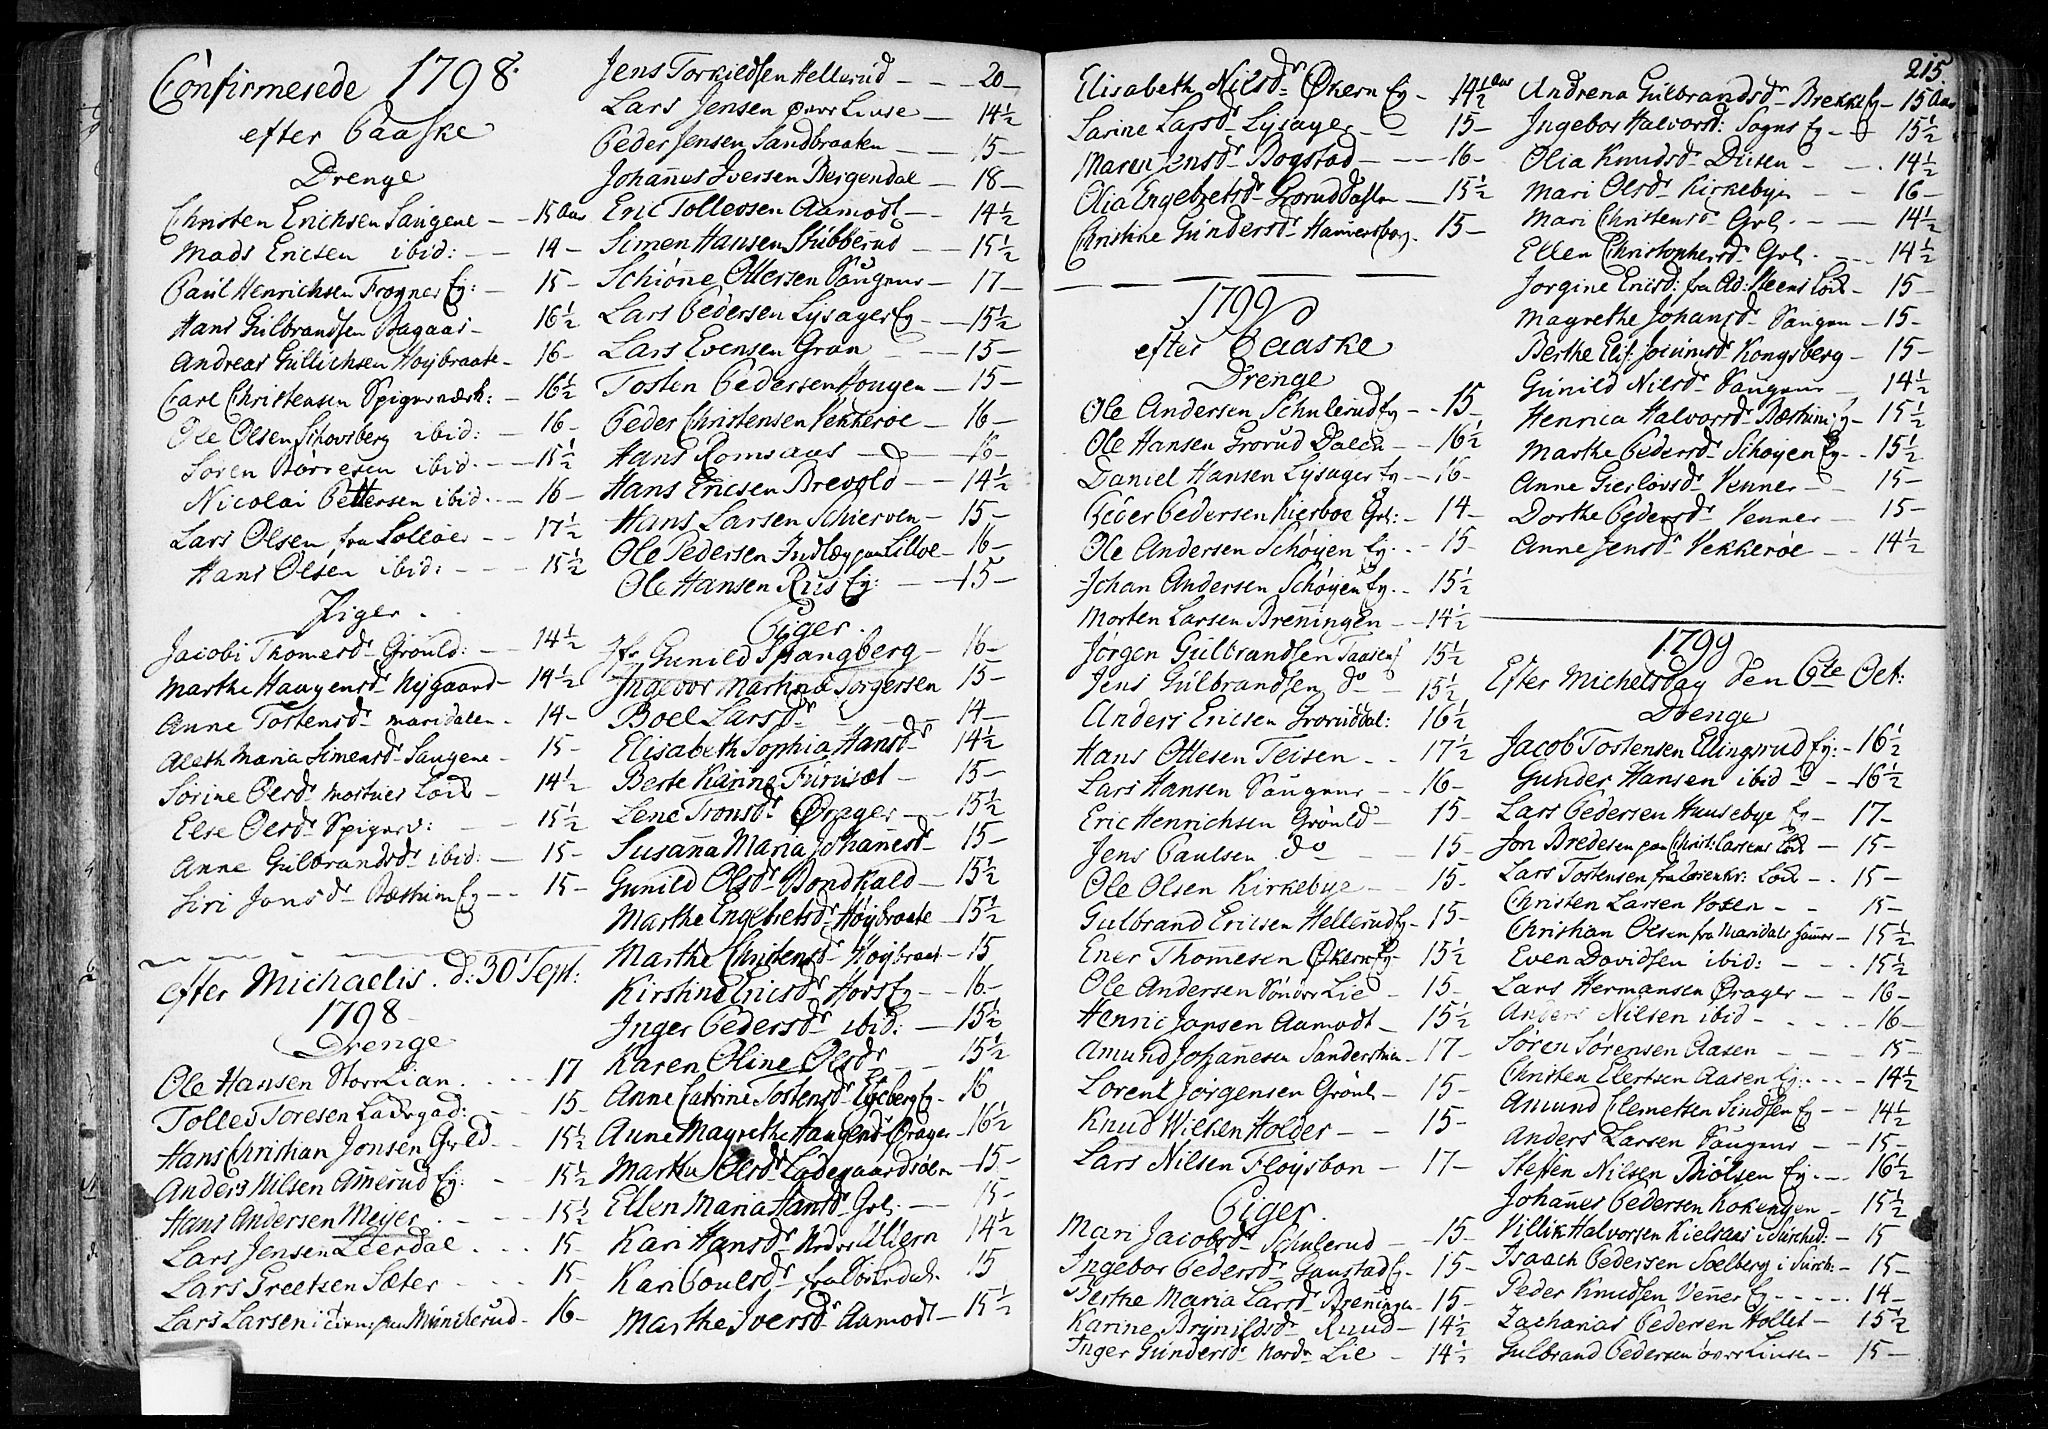 Confirmerede 1798.
efter Paaske
Drenge
Christen Erichsen Saugene - - 15 Aar
Mads Ericsen ibid: - - 14 -
Paul Henrichsen Frogner Eg: - 15 -
Hans Gulbrandsen Bagaas - 16½
Andreas Gullichsen Høybraate - 16 -
Carl Christensen Spigerværk: - 16½
Ole Olsen Schovsberg ibid: - 16 -
Søren Børresen ibid. - - 15½
Nicolai Pettersen ibid. - - 16 -
Lars Olsen fra - - 17½
Hans Olsen ibid: - - - 15½
Piger.
Jacobi Thomesdr Grøuld: - - 14½
Marthe Haagensdr Nygaard - 14½
Anne Tostensdr maridalen - 14 -
Aleth Maria Simensdr Saugene - 15 -
Sørine Olsdr Løck - 14½
Else Olsdr Spigerv: - - 15½
Anne Gulbrandsdr ibid: - 15 -
Siri Jonsdr Bæstum Eg - - 15 -
efter Michaelis. d: 30 Sept:
1798 -
Drenge
Ole Hansen StorrLian. - - - 17
Tolles Toresen Ladegad: - - 15 -
Hans Christian Jonsen Grøld - - 15½
Anders Nilsen Amerud Eg: - - 15½
Hans Andersen Meyer. - - - 15½
Lars Jensen Leerdal . - - - 15 -
Lars Greetsen Sæter - - - 15 -
Lars Larsen Munkerud - 16 -
Jens Torkildsen Hellerud - - - 20 -
Lars Jensen øvre Linse - - 14½
Peder Jensen Sandbraaten - - 15 -
Johannes Iversen Bergendal - 18 -
Eric Tollevsen Aamodt - - 14½
Simen Hansen Stubberud - - 15½
Schiønne Ottersen Saugene - - 17 -
Lars Pedersen Lysager Eg - - 15½
Lars Evensen Gran - - - 15 -
Tosten Pedersen Hougen - 15 -
Peder Christensen Vekkerøe - 16 -
Hans Romsaas - - - 16 -
Hans Ericsen Brevold - - 14½
Hans Larsen Schierven - 15 -
Ole Pedersen Indlæg paa Lilloe - 16 -
Ole Hansen Rus Eg: - - 15 -
Piger.
Jfr Gunild Spangberg - 16 -
Ingebor Martina Torgersen 15 -
Boel Larsdr - - - 14 -
Elisabeth Sophia Hansdr 14½
Berte Karine Furusæt - 15 -
Lene Tronsdr Ørager - - 15½
Susanna Maria Johannesdr - 15 -
Gunild Olsdr Bondkald - 15½
Marthe Engebretsdr Høybraate - 15½
Marthe Christensdr Høybraat - 15
Kirstine Ericsdr Hovs Eg - - 16 -
Inger Pedersdr ibid: - 15½
Karen Oline Olsdr - - 15½
Anne Catrine Tostensdr Eg - 16
Anne Magrethe Haagensdr Ørager - 16½
Marthe Olsdr Ladegaardsøen - 15 -
Ellen Maria Hansdr Grl. - - 15 -
Kari Hansdr Ullern 14½
Kari Poulsdr fra Sørkedal. 15
Marthe Iversdr Aamodt - 15½
215.
Elisabeth Nilsdr Økern Eg - 14½ Aar
Sarine Larsdr Lysager - - 15 -
Maren Jensdr Bogstad - - - 16 -
Olia Engebretsdr Grorud Dalen - 15½
Christine Gundersdr Hammersborg. 15 -
1799
efter Paaske
Drenge
Ole Andersen Schulerud Eg - - 15 -
Ole Hansen Grorud Dalen - - 16½
Daniel Hansen Lysager Eg - - 16 -
Peder Pedersen Kierboe Grl: - 14 -
Ole Andersen Schøyen Eg. - - 15 -
Johan Andersen Schøyen Eg. - 15½
Morten Larsen Brenningen - - 14½
Jørgen Gulbrandsen Taasen 15½
Jens Gulbrandsen do - 15½
Anders Ericsen Groruddal: 16½
Hans Ottesen Teisen - - 17½
Lars Hansen Saugene - - 16 -
Eric Henrichsen Grøuld - 15 -
Jens Paulsen do - - 15 -
Ole Olsen Kirkebye - - 15 -
Gulbrand Ericsen Hellerud Eg - 15 -
Ener Thomesen Økern Eg - 15½
Ole Andersen Søndre Lie - 15 -
Henric Jonsen Aamodt - 15½
Amund Johannesen Sanderstuen - 17 -
Lorent Jørgensen Grønl - 15 -
Knud Wilken Holder - - 15 -
Lars Nilsen Fløysbon - 17 -
Piger.
Mari Jacobsdr Schulerud - - 15 -
Ingebor Pedersdr Gaustad Eg - 15 -
Berthe Maria Larsdr Breningen - 15 -
Karine Brynildsdr Ruud - 14½
Inger Gundersdr Nordr Lie - 14½
Andrena Gulbrandsdr Brekke Eg - 15 Aar
Ingebor Halvorsd: Sogns Eg - - 15½
Olia Knudsdr Disen - - . 14½
Mari Olsdr Kirkebye - - 16 -
Mari Christensdr Grl. - - 14½
Ellen Christophersdr Grl. - - 14½
Jorgine Ericsd: fra Ad: Steens Løck - 15 -
Magrethe Johansdr Saugen - 15 -
Berthe Elis: Joensdr Kongsberg - 15 -
Gunild Nilsdr Saugene - 14½
Henrica Halvorsdr Bæstum Eg - 15½
Marthe Pedersdr Schøyen Eg. - 15½
Anne Gierløvsdr Venner - - 15 -
Dorthe Pedersdr Venner - - 15 -
Anne Jensdr Vekkerøe - - 14½
1799
Efter Michelsdag den 6te Oct:
Drenge
Jacob Tostensen Ellingsrud Eg: - 16½
Gunder Hansen ibid - - 16½
Lars Pedersen Huusebye Eg - 17 -
Jon Bredesen paa Christ: Larsens Løck - 15 -
Lars Tostensen fra Løck - . 15 -
Christen Larsen Voxen - - 15 -
Christian Olsen fra Maridals Hammer - 15½
Even Davidsen ibid: - - - . 15½
Lars Hermansen Ørager - - 16 -
Anders Nilsen ibid - - - - - 16 -
Søren Sørensen Aasen - - 15 -
Christen Elertsen Aasen Eg: - - - 14½
Amund Clemetsen Sindsen Eg - - 14½
Anders Larsen Saugene - - 15 -
Steffen Nilsen Biølsen Eg. - - 16½
Johannes Pedersen Kokengen - 15½
Villik Halvorsen Kielsaas i Sørched: - 15
Isaach Pedersen Soelberg i Sørch: - 15 -
Peder Knudsen Venner Eg - - - - 14 -
Zacharias Pedersen Hollet - 15½
Gulbrand Pedersen øvre Linse - 15 -